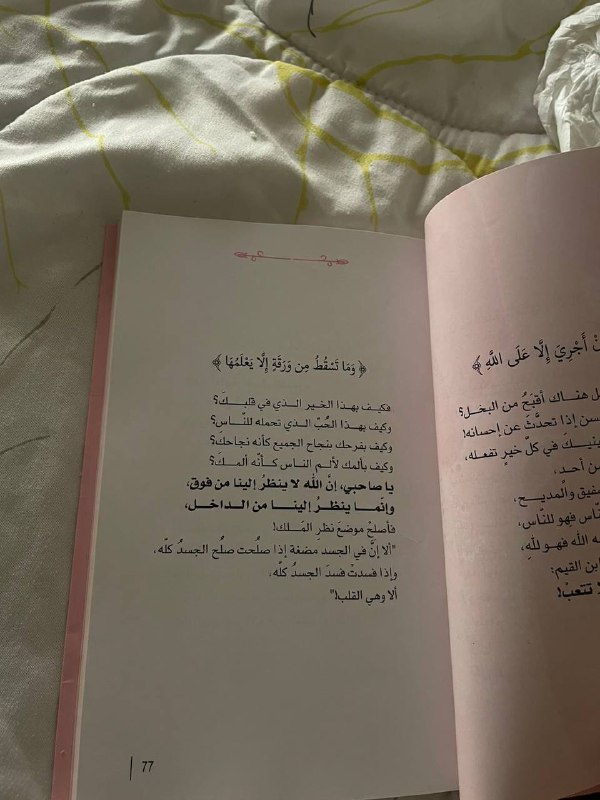 ﴿ وَمَا تَسْقُطُ مِن وَرَقَةٍ إِلَّا يَعْلَمُهَا ﴾
فكيف بهذا الخير الذي في قلبكَ؟
وكيف بهذا الحُبّ الذي تحمله للنَّاس؟
وكيف بفرحك بنجاح الجميع كأنه نجاحكَ؟
وكيف بألمك لألم الناس كأنّه ألمكَ؟
يا صاحبي، إنَّ الله لا ينظرُ إلينا من فوق،
وإنّما ينظرُ إلينا من الداخل،
فأصلحْ موضعَ نظرِ المَلك!
"ألا إنَّ في الجسد مضغة إذا صلُحت صلُح الجسدُ كلّه،
وإذا فسدتْ فسدَ الجسدُ كلّه،
ألا وهي القلب!"
77
أَجْرِيَ إِلَّا عَلَى اللَّهِ ﴾
هناك أقبَحُ من البخل؟
إذا تحدَّثَ عن إحسانه!
في كلّ خيرٍ تفعله،
من أحد،
والمديح،
فهو للنّاس،
الله فهو للهِ،
ابن القيم:
تتعبْ!